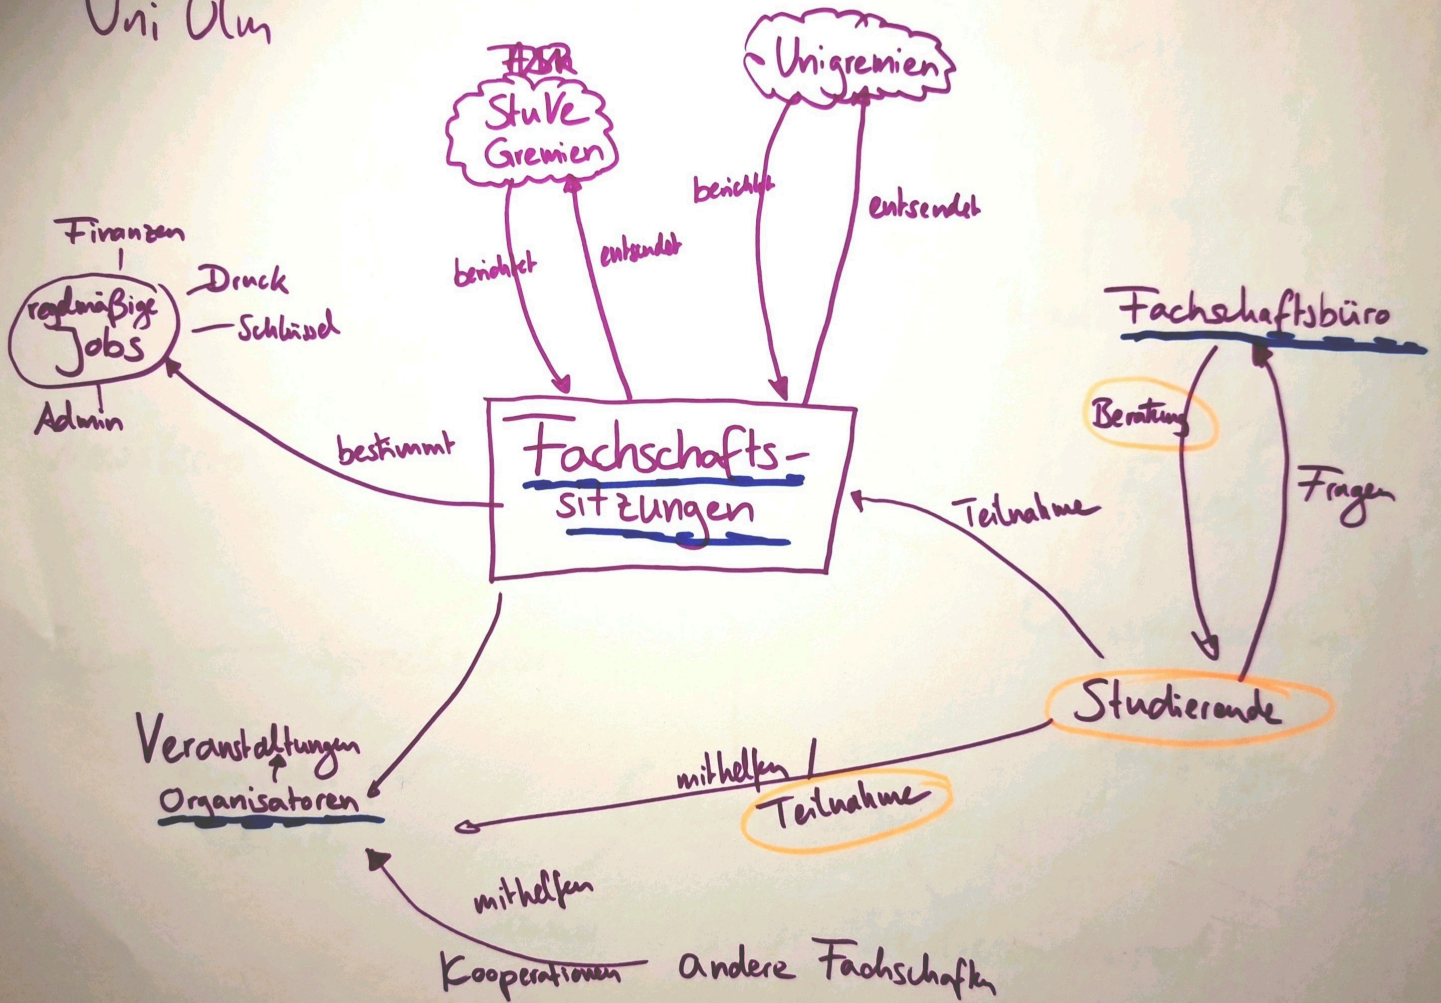 Uni Ulm
StuVe
Gremien
Unigremien
berichtet
entsendet
berichtet
entsendet
Finanzen
Druck
Schlüssel
regelmäßige
Jobs
Admin
bestimmt
Fachschafts-
sitzungen
Fachschaftsbüro
Beratung
Fragen
Teilnahme
Studierende
Veranstaltungen
Organisatoren
mithelfen /
Teilnahme
mithelfen
Kooperationen
andere Fachschaften